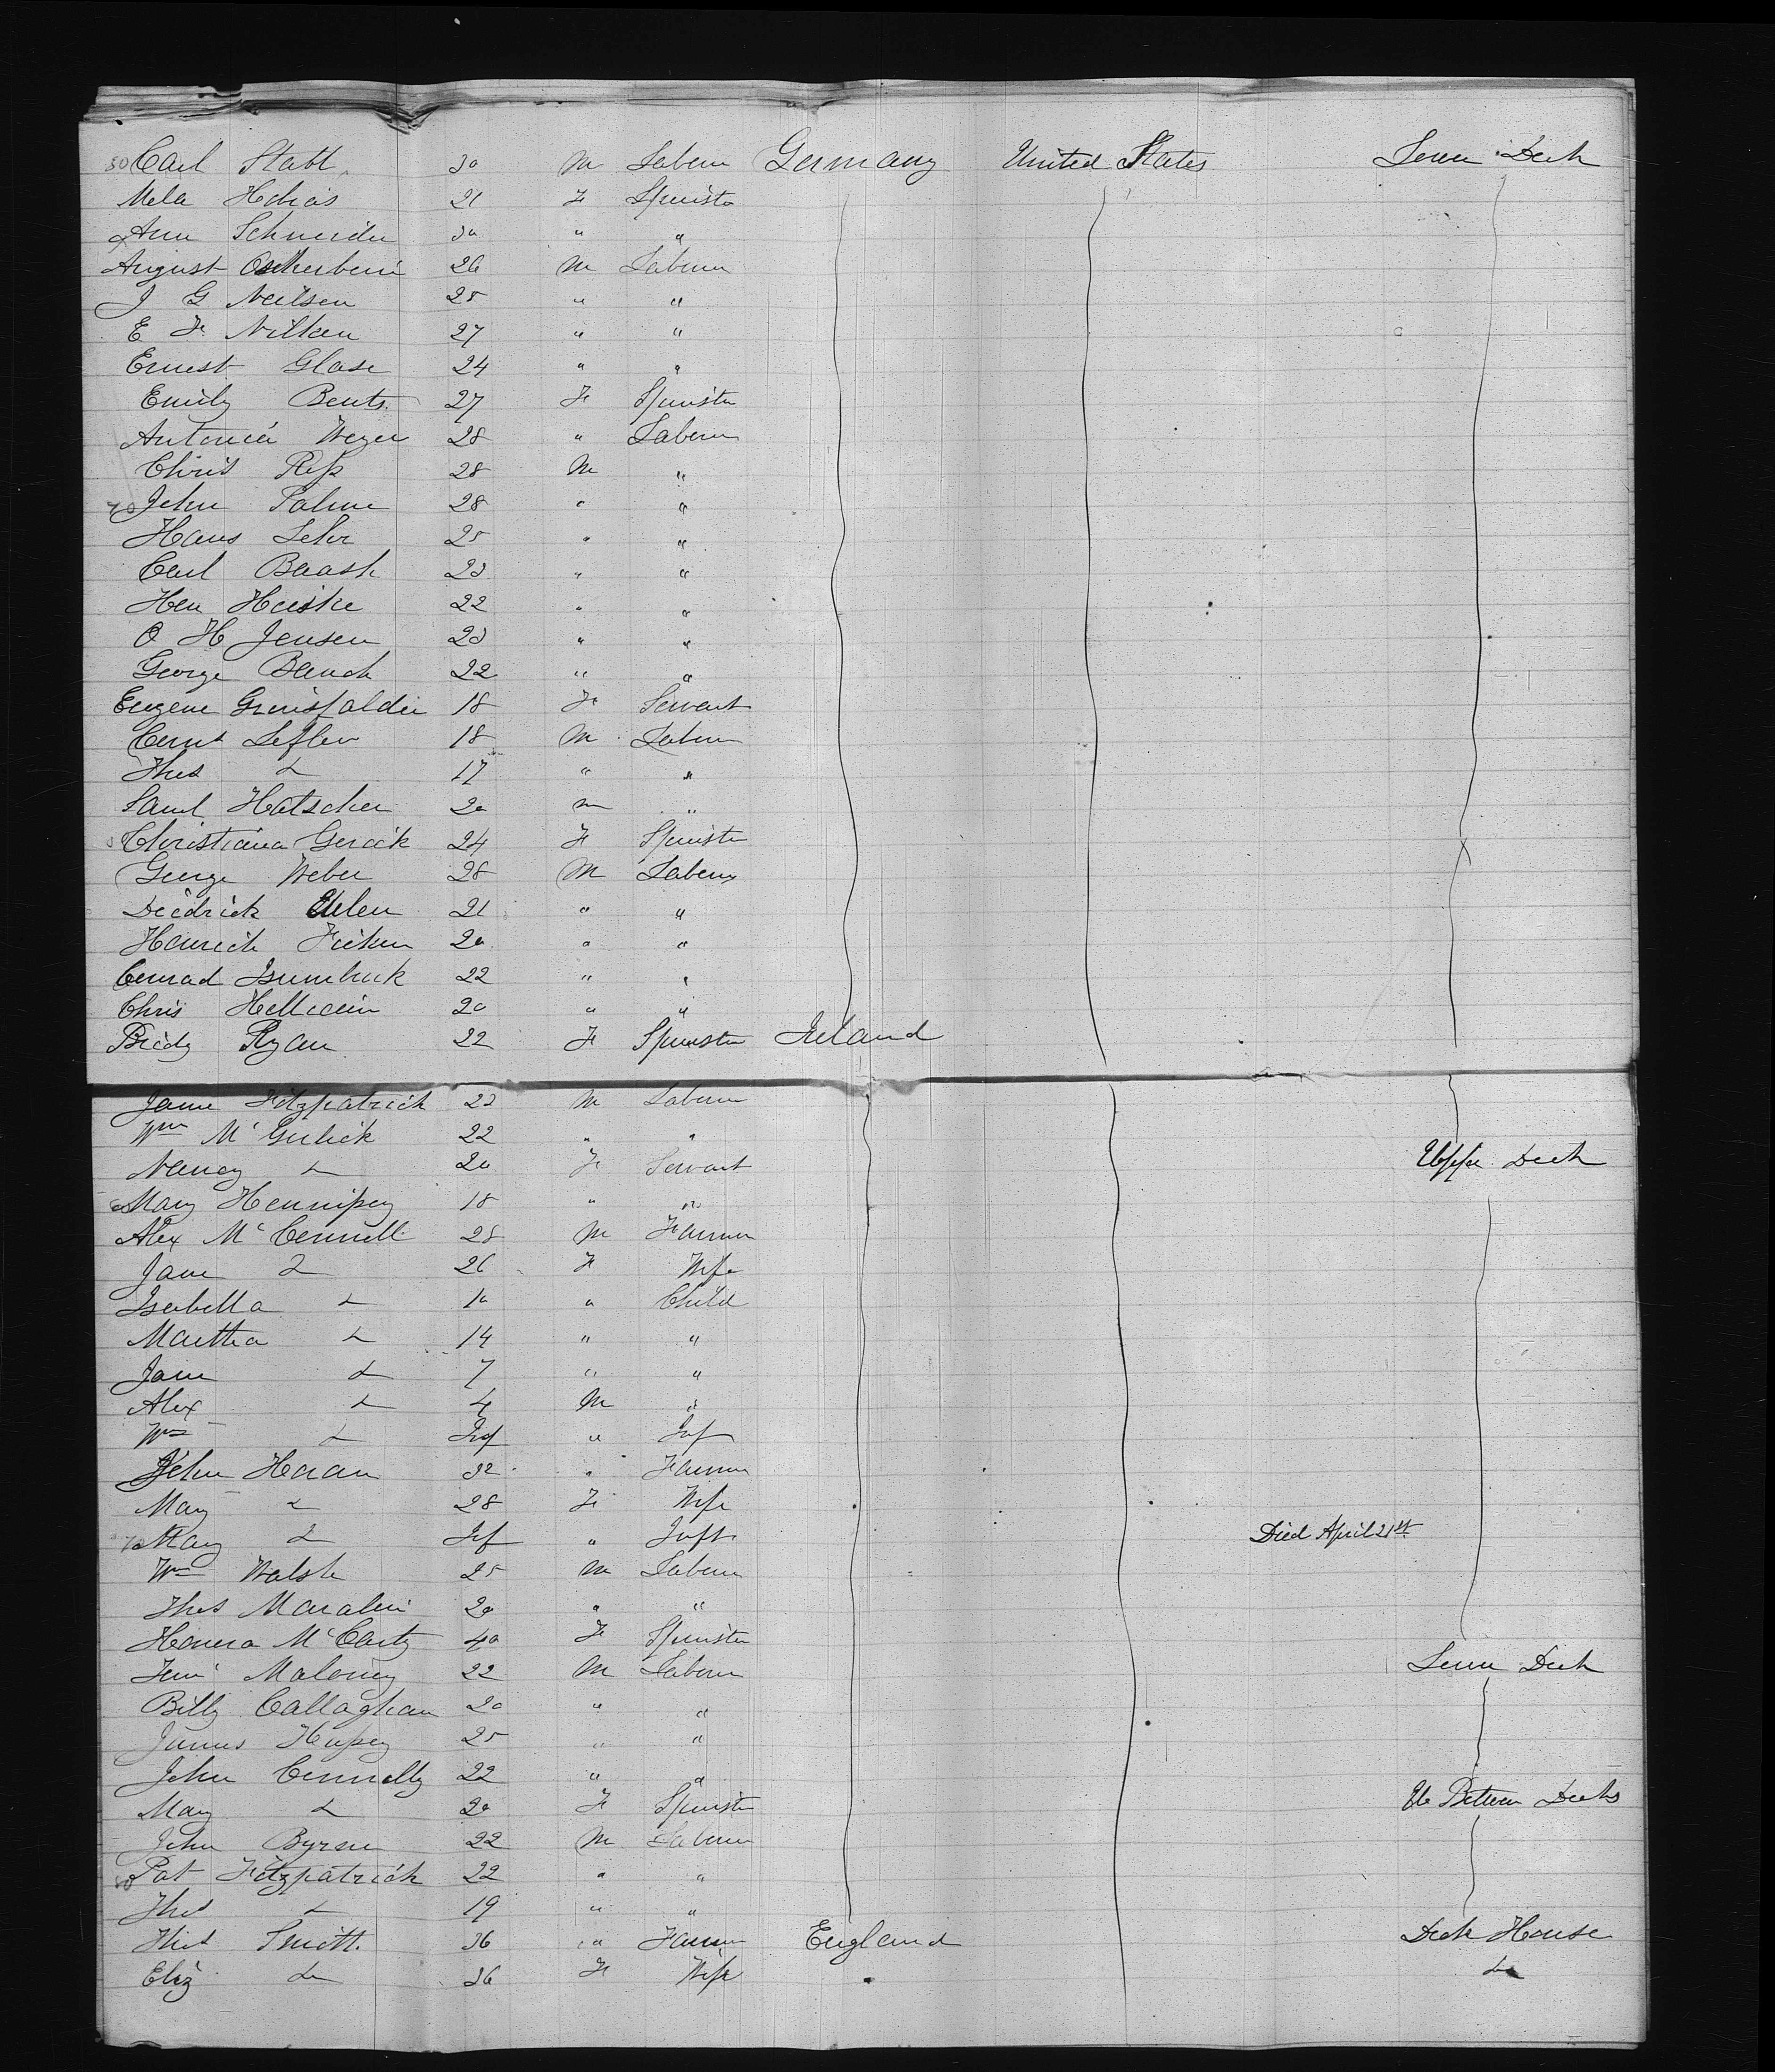 50 Carl Stabl 30 M Laborer Germany United States Lower Deck
Mela 21 F Spinster
Ann Schneider 30 " "
August 26 M Laborer
J G Neilsen 25 " "
E F Nilken 27 " "
Ernest Glase 24 " "
Emily Bents 27 F Spinster
Antonia Weyer 28 " Laborer
Chris 28 M "
John Palme 28 " "
Hans Lehr 25 " "
Carl Baash 23 " "
Hen Heiske 22 " "
O H Jensen 23 " "
George Bauch 22 " "
Eugene 18 F Servant
Lefler 18 M Laborer
Thos Do 17 " "
Saml Hatscher 20 m "
Christiana Gerack 24 F Spinster
George Weber 28 M Laborer
Diedrick 21 " "
Heinrich Ficken 20 " "
Conrad 22 " "
Chris 20 " "
Bridy Ryan 22 F Spinster Ireland
Fitzpatrick 23 M Laborer
Wm McGulick 22 " "
Nancy Do 20 F Servant Upper Deck
Mary Hennipey 18 " "
Alex McConnell 28 M Farmer
Jane Do 26 F Wife
Isabella Do 10 " Child
Martha Do 14 " "
Jane Do 7 " "
Alex Do 4 M "
Wm Do Inf " Inf
John Horan 32 " Farmer
Mary Do 28 F Wife
70 Mary Do Inf " Inft Died April 21st
Wm Walsh 25 M Laborer
Thos 20 " "
Honora McCarty 40 F Spinster
Maloney 22 M Laborer Lower Deck
Billy Callaghan 20 " "
James 25 " "
John Connolly 22 " "
Mary Do 20 F Spinster U Between Decks
John Byrne 22 M Laborer
80 Pat Fitzpatrick 22 " "
Thos Do 19 " "
Thos Smith 36 " Farmer England Deck House
Eliz Do 36 F Wife " Do